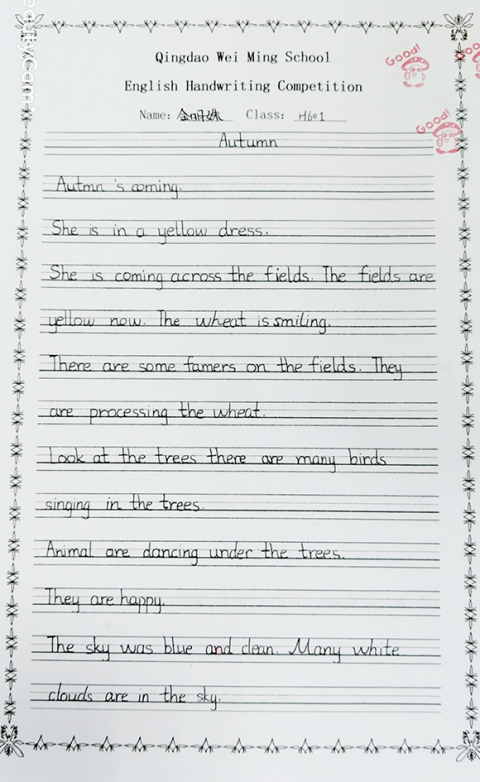 Qingdao Wei Ming School
English Handwriting Competition
Good!
Name: Class: H601
Good!
Autumn
Autmn 's coming.
She is in a yellow dress.
She is coming across the fields. The fields are
yellow now. The wheat is smiling.
There are some famers on the fields. They
are processing the wheat.
Look at the trees there are many birds
singing in the trees.
Animal are dancing under the trees.
They are happy.
The sky was blue and clean. Many white
clouds are in the sky.